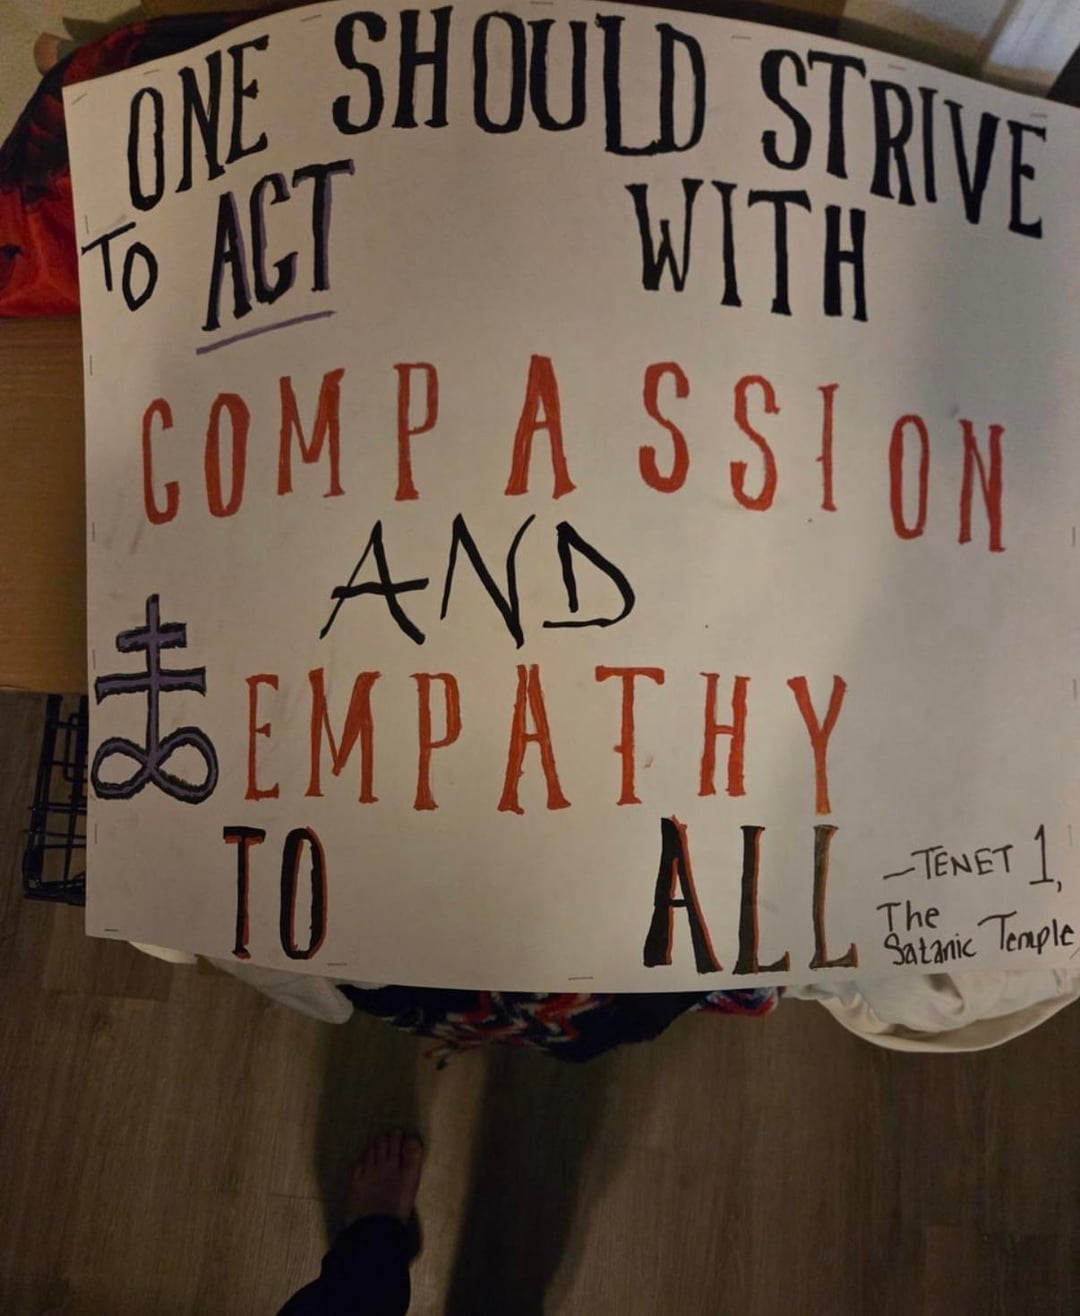 ONE SHOULD STRIVE
TO ACT WITH
COMPASSION
AND
EMPATHY
TO ALL
—TENET 1,
The
Satanic Temple